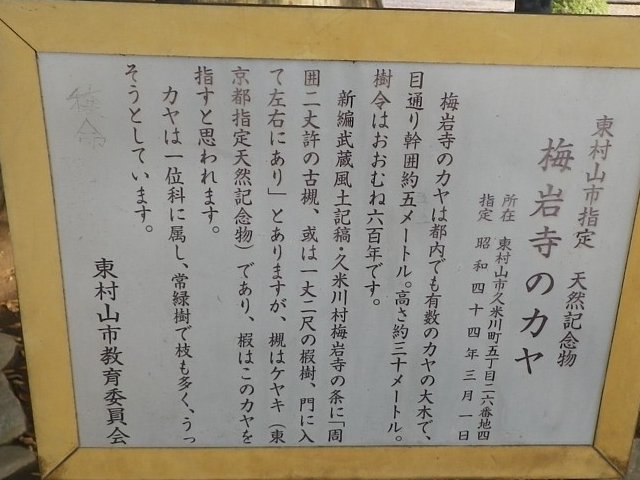 東村山市指定 天然記念物
梅岩寺のカヤ
所在 東村山市久米川町五丁目二六番地四
指定 昭和四十四年三月一日
梅岩寺のカヤは都内でも有数のカヤの大木で、
目通り幹囲約五メートル。高さ約三十メートル。
樹令はおおむね六百年です。
新編武蔵風土記稿・久米川村梅岩寺の条に「周
囲二丈許の古槻、或は一丈二尺の榎樹、門に入
て左右にあり」とありますが、槻はケヤキ（東
京都指定天然記念物）であり、榎はこのカヤを
指すと思われます。
カヤは一位科に属し、常緑樹で枝も多く、うっ
そうとしています。
東村山市教育委員会